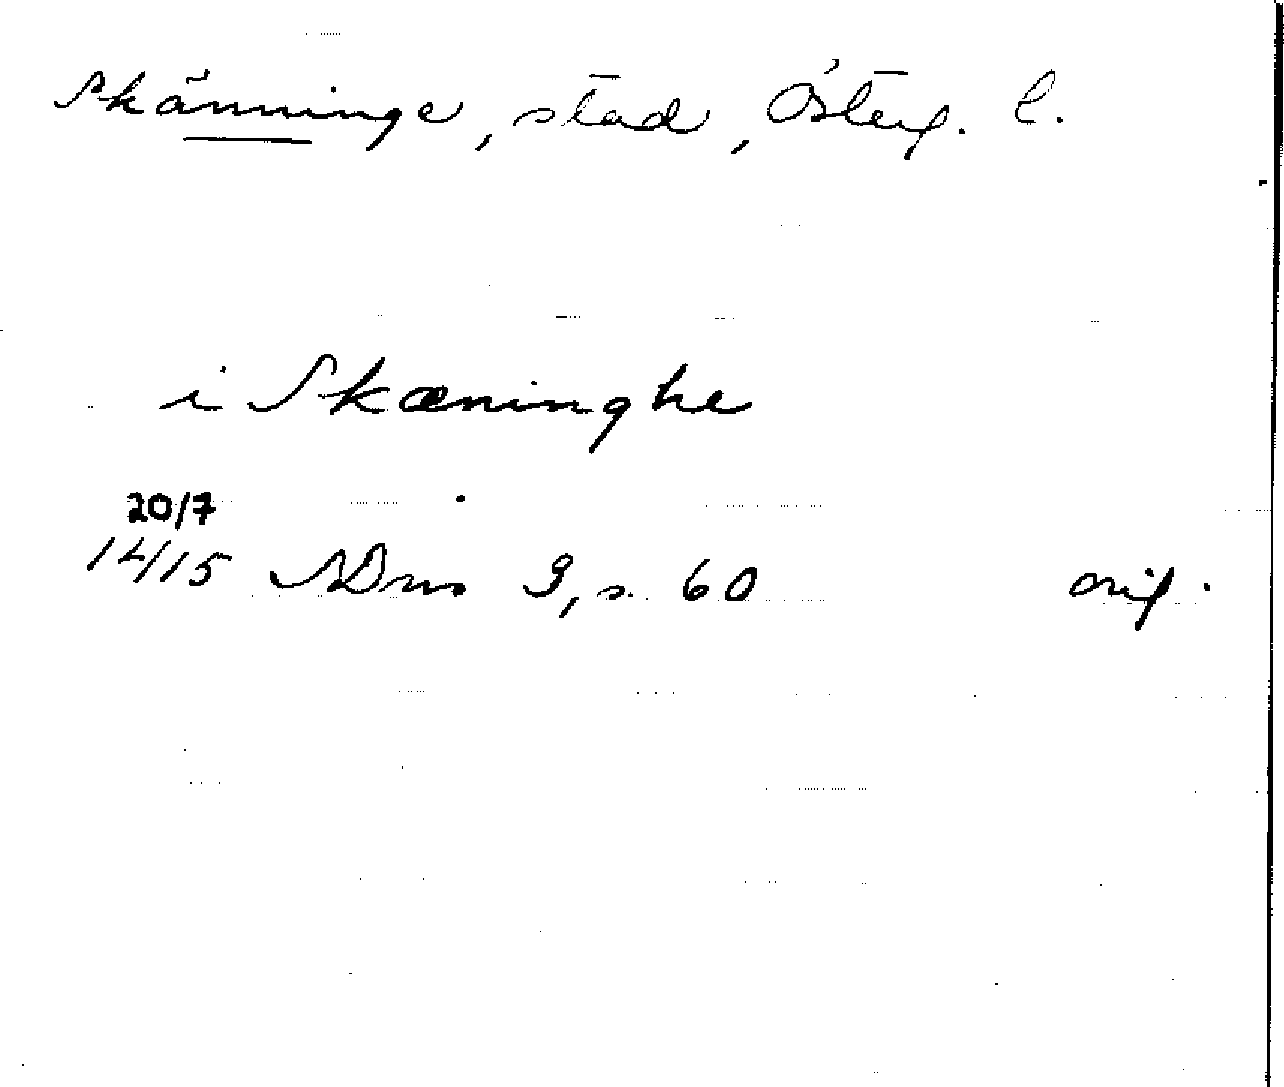 Skänninge, stad, Österg. l.
i Skæninghe
20/7
1415 SDns 3, s. 60 orig.